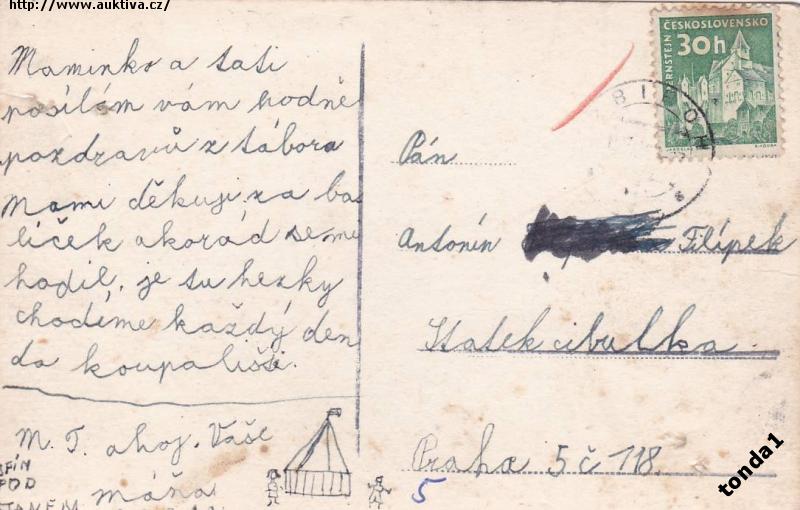 http://www.auktiva.cz/
Maminko a tati
posílám vám hodně
pozdravů z tábora
Mami děkuji za ba
líček akorád se me
hodil, je tu hezky
chodíme každý den
do koupališti.
M. T. ahoj. Vaše
máňa
POD
ČESKOSLOVENSKO
30h
PERNŠTEJN
Pán
Antonín Filípek
Statek cibulka
Praha 5 č 118.
5
tonda1